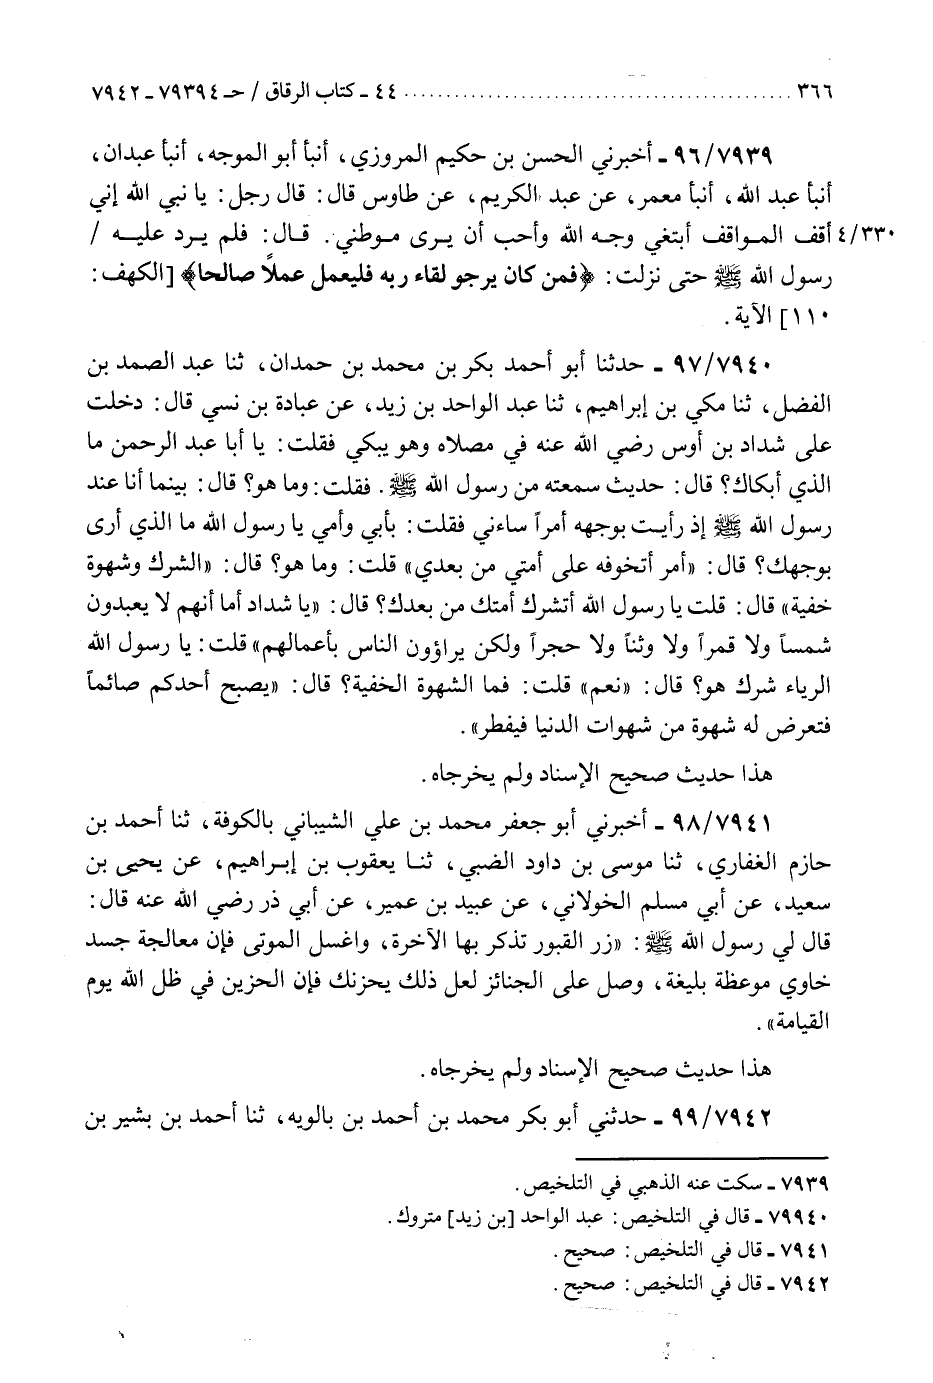 ٣٦٦ ........................................ ٤٤ ـ كتاب الرقاق / حـ ٧٩٣٩٤ ـ ٧٩٤٢
٩٦/٧٩٣٩ ـ أخبرني الحسن بن حكيم المروزي، أنبأ أبو الموجه، أنبأ عبدان،
أنبأ عبد الله، أنبأ معمر، عن عبد الكريم، عن طاوس قال: قال رجل: يا نبي الله إني
٤/٣٣٠ أقف المواقف أبتغي وجه الله وأحب أن يرى موطني. قال: فلم يرد عليه /
رسول الله ﷺ حتى نزلت: ﴿فمن كان يرجو لقاء ربه فليعمل عملاً صالحا﴾ [الكهف:
١١٠] الآية.
٩٧/٧٩٤٠ ـ حدثنا أبو أحمد بكر بن محمد بن حمدان، ثنا عبد الصمد بن
الفضل، ثنا مكي بن إبراهيم، ثنا عبد الواحد بن زيد، عن عبادة بن نسي قال: دخلت
على شداد بن أوس رضي الله عنه في مصلاه وهو يبكي فقلت: يا أبا عبد الرحمن ما
الذي أبكاك؟ قال: حديث سمعته من رسول الله ﷺ. فقلت: وما هو؟ قال: بينما أنا عند
رسول الله ﷺ إذ رأيت بوجهه أمراً ساءني فقلت: بأبي وأمي يا رسول الله ما الذي أرى
بوجهك؟ قال: «أمر أتخوفه على أمتي من بعدي» قلت: وما هو؟ قال: «الشرك وشهوة
خفية» قال: قلت يا رسول الله أتشرك أمتك من بعدك؟ قال: «يا شداد أما أنهم لا يعبدون
شمساً ولا قمراً ولا وثناً ولا حجراً ولكن يراؤون الناس بأعمالهم» قلت: يا رسول الله
الرياء شرك هو؟ قال: «نعم» قلت: فما الشهوة الخفية؟ قال: «يصبح أحدكم صائماً
فتعرض له شهوة من شهوات الدنيا فيفطر».
هذا حديث صحيح الإسناد ولم يخرجاه.
٩٨/٧٩٤١ ـ أخبرني أبو جعفر محمد بن علي الشيباني بالكوفة، ثنا أحمد بن
حازم الغفاري، ثنا موسى بن داود الضبي، ثنا يعقوب بن إبراهيم، عن يحيى بن
سعيد، عن أبي مسلم الخولاني، عن عبيد بن عمير، عن أبي ذر رضي الله عنه قال:
قال لي رسول الله ﷺ: «زر القبور تذكر بها الآخرة، واغسل الموتى فإن معالجة جسد
خاوي موعظة بليغة، وصل على الجنائز لعل ذلك يحزنك فإن الحزين في ظل الله يوم
القيامة».
هذا حديث صحيح الإسناد ولم يخرجاه.
٩٩/٧٩٤٢ ـ حدثني أبو بكر محمد بن أحمد بن بالويه، ثنا أحمد بن بشير بن
٧٩٣٩ ـ سكت عنه الذهبي في التلخيص.
٧٩٩٤٠ ـ قال في التلخيص: عبد الواحد [بن زيد] متروك.
٧٩٤١ ـ قال في التلخيص: صحيح.
٧٩٤٢ ـ قال في التلخيص: صحيح.